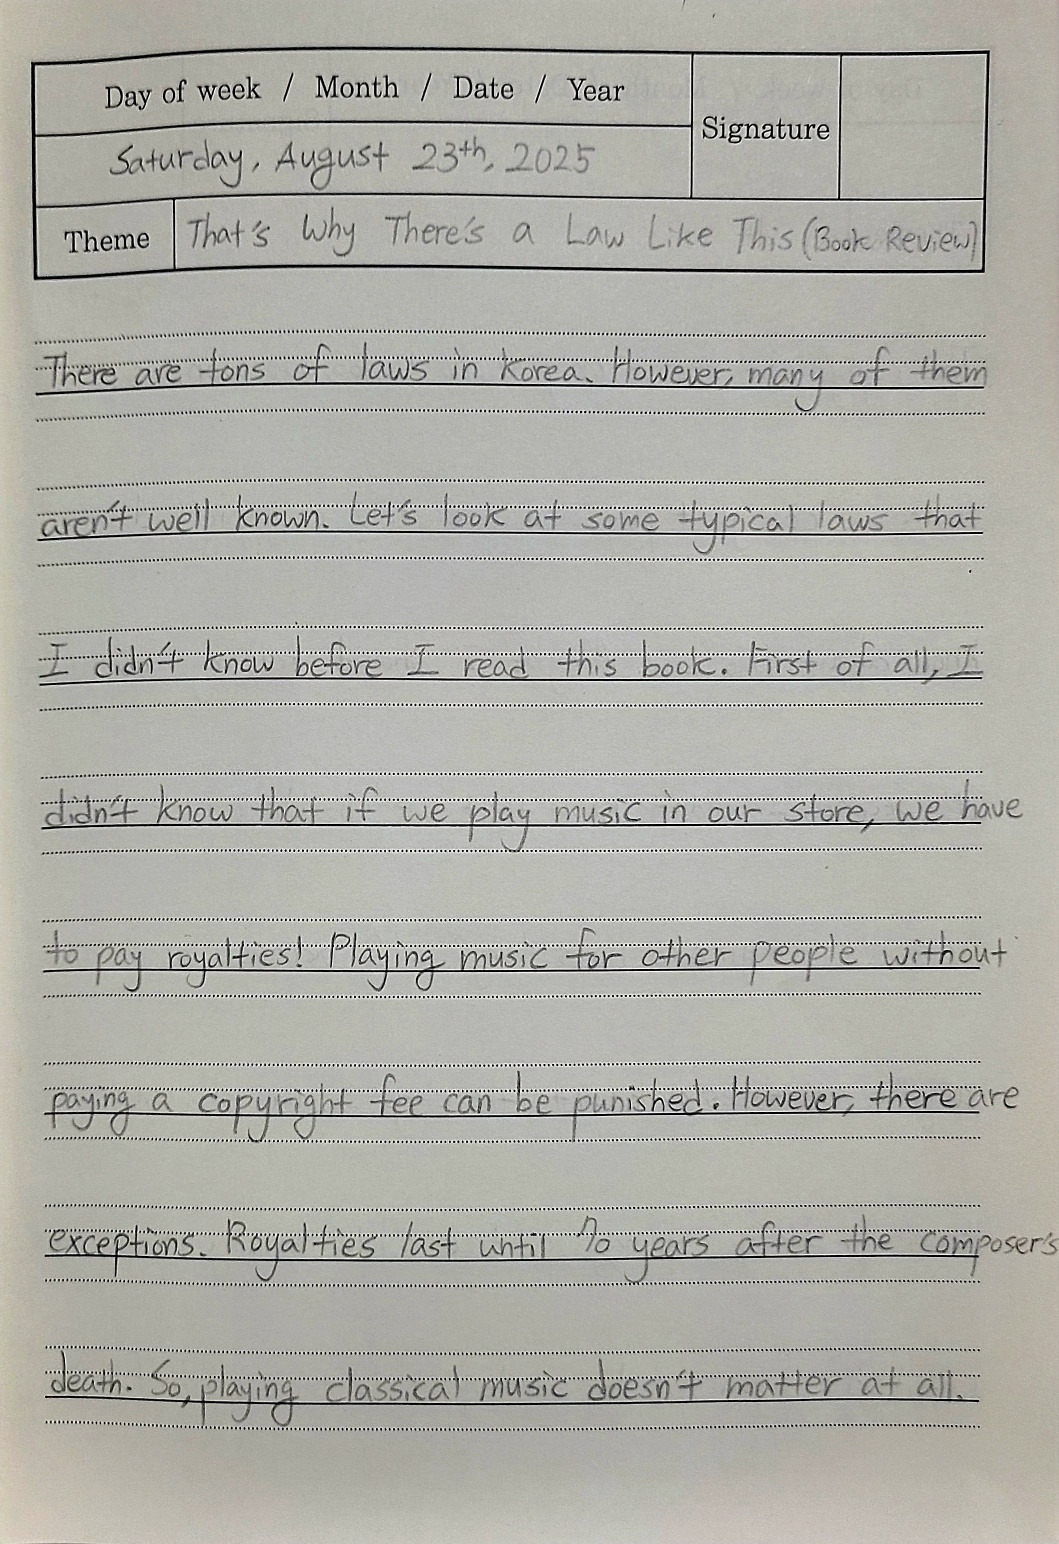 Day of week / Month / Date / Year
Signature
Saturday, August 23th, 2025
Theme
That's Why There's a Law Like This (Book Review)
There are tons of laws in Korea. However, many of them
aren't well known. Let's look at some typical laws that
I didn't know before I read this book. First of all, I
didn't know that if we play music in our store, we have
to pay royalties! Playing music for other people without
paying a copyright fee can be punished. However, there are
exceptions. Royalties last until 70 years after the composer's
death. So, playing classical music doesn't matter at all.